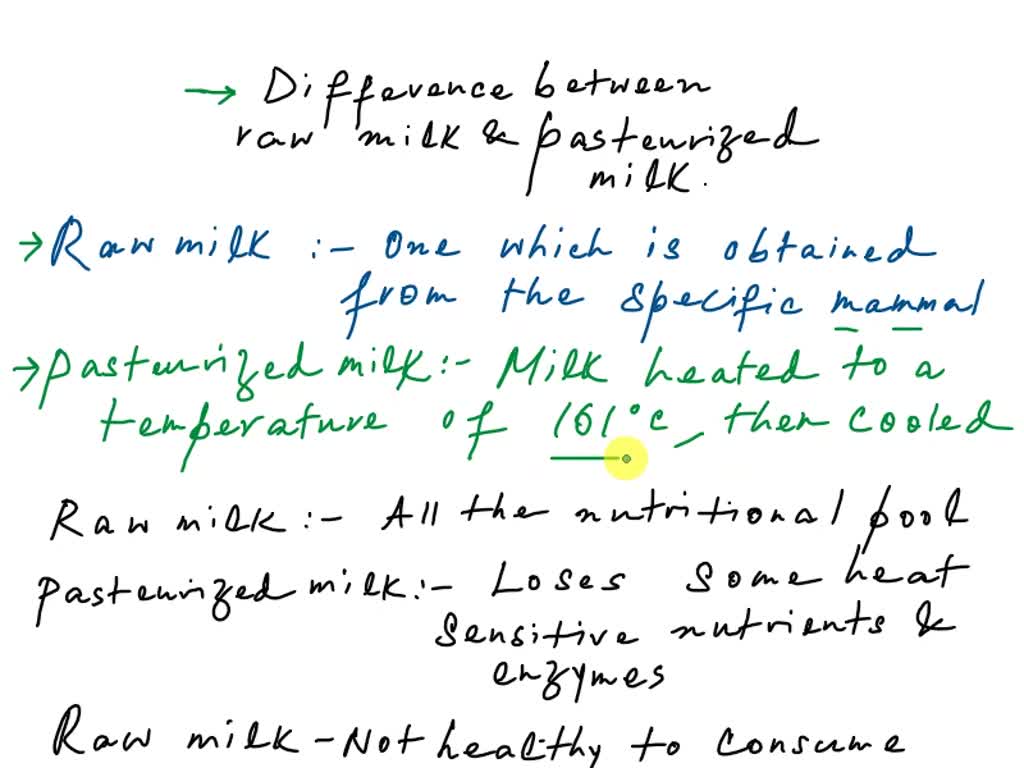 → Difference between
raw milk & pasteurized
milk.
→ Raw milk :- One which is obtained
from the specific mammal
→ pasteurized milk :- Milk heated to a
temperature of 161°C, then cooled
Raw milk :- All the nutritional pool
pasteurized milk :- Loses some heat
sensitive nutrients &
enzymes
Raw milk - Not healthy to consume